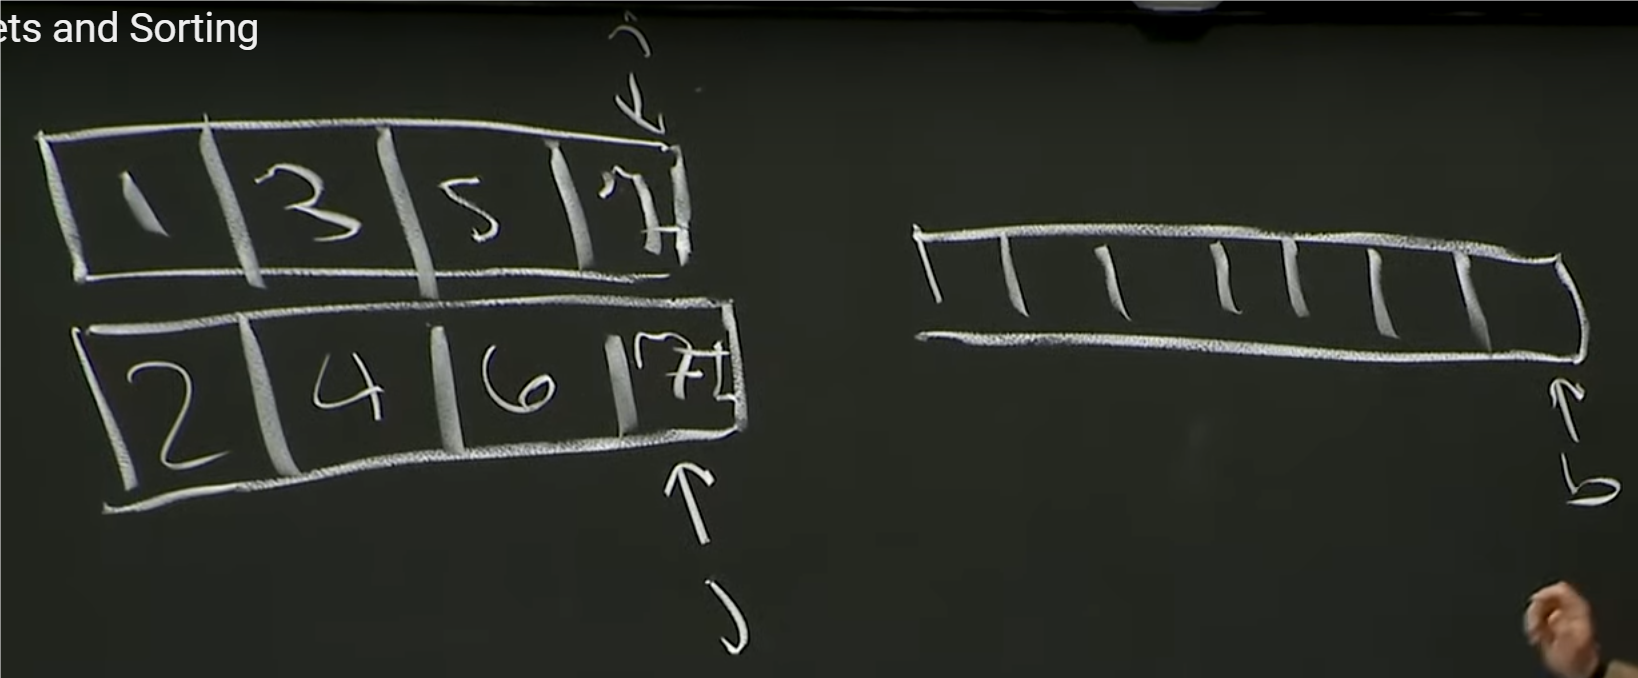 ets and Sorting
i
1 3 5 7
2 4 6 7
j
b